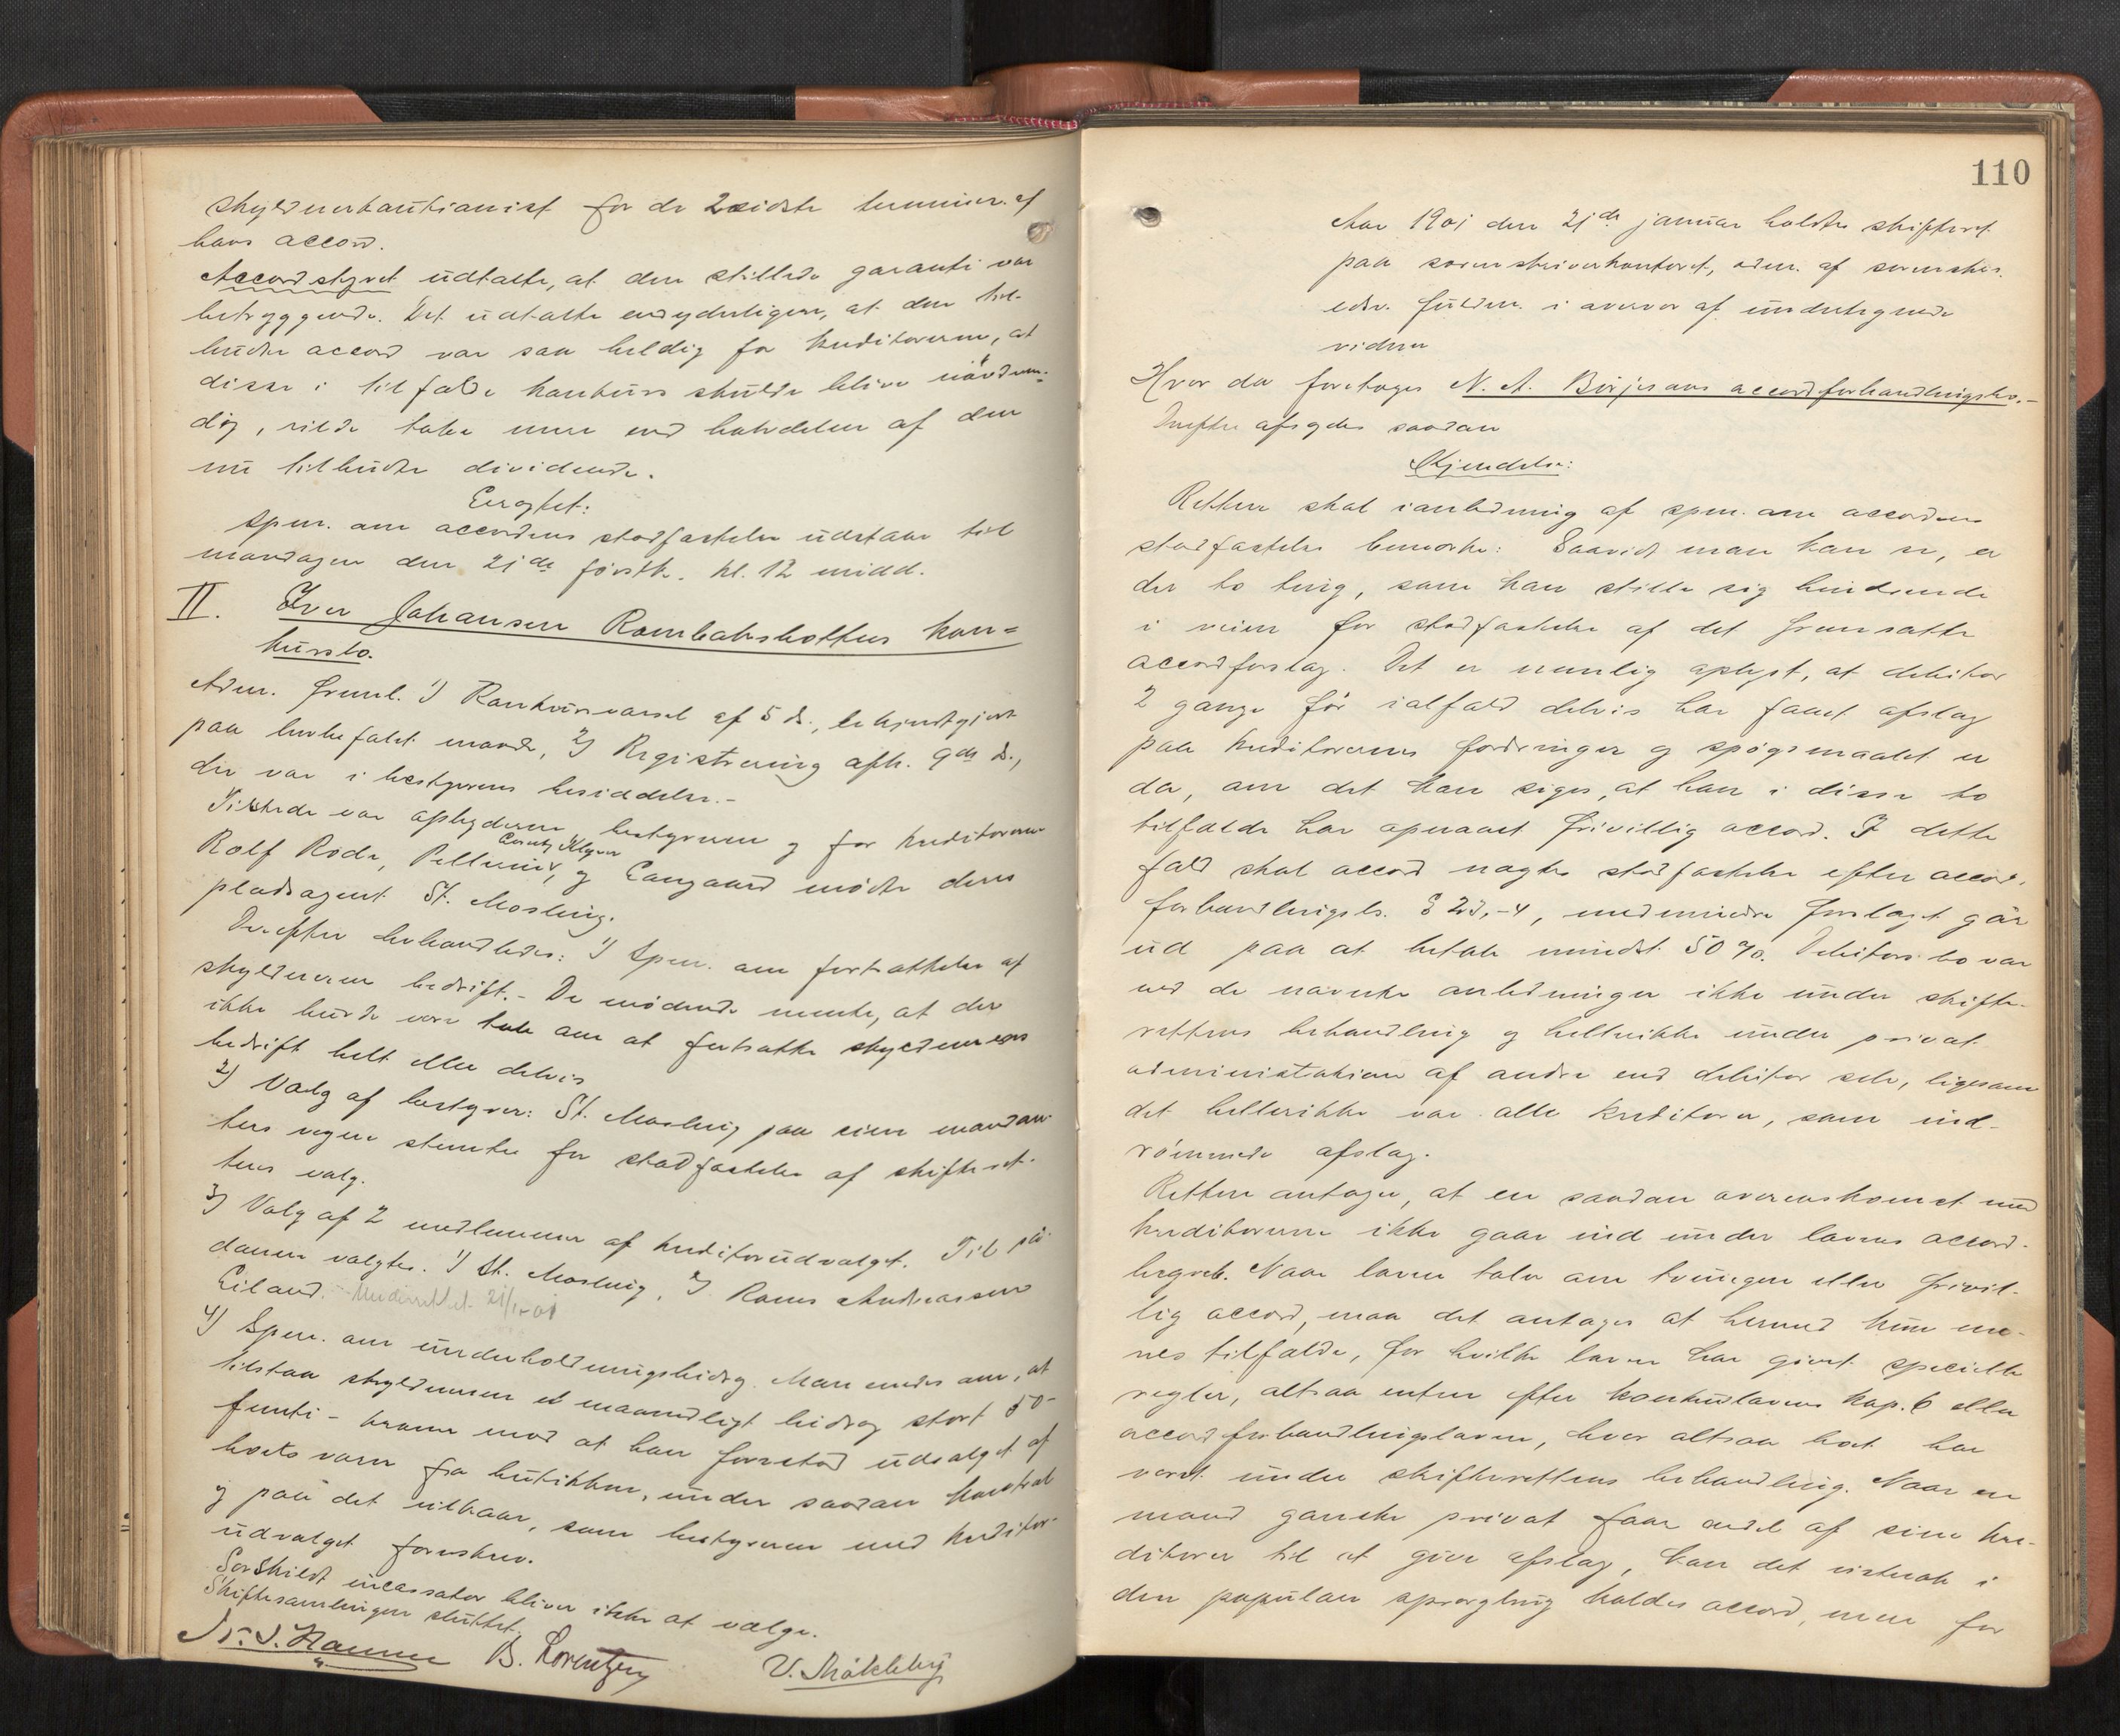 skyldnerkautionist for de 2 sidste terminer af
hans accord.
Accordstyret udtalte, at den stillede garanti var
betryggende. Det udtalte endyderligere, at den til-
budte accord var saa heldig for kreditorerne, at
disse i tilfælde konkurs skulde blive nødven-
dig, vilde tabe mere end halvdelen af den
nu tilbudte dividende.
Eragtet:
Spm. om accordens stadfæstelse udstaar til
mandagen den 21de førstk. kl. 12 midd.
II. Iver Johansen Rombakbottens kon=
kursbo.
Adm. freml. 1) Konkursvarsel af 5 ds., bekjendtgjort
paa lovbefalet maade, 2) Registrering afh. 9de ds.,
der var i bestyrerens besiddelse.-
Tilstede var opbyderen, bestyreren og for kreditorerne
Rolf Rode,
og Langaard mødte deres
pladsagent St. Mosling.
Derefter behandledes: 1) Spm. om fortsættelse af
skyldnerens bedrift.- De mødende mente, at der
ikke burde være tale om at fortsætte skyldnerens
bedrift helt eller delvis
2) Valg af bestyrer: St. Mosling paa sine mandan-
ters vegne stemte for stadfæstelse af skifteret-
tens valg.
3) Valg af 2 medlemmer af kreditorudvalget. Til
valgtes. 1) St. Mosling, 2) Andreassen
Eiland. Underrettet 21/1-01
4) Spm. om underholdningsbidrag. Man enedes om, at
tilstaa skyldneren et maanedligt bidrag stort 50-
femti- kroner mod at han forestod udsalget af
boets varer fra butikken, under saadan kontrol
og paa det vilkaar, som bestyreren med kreditor-
udvalget foreskrev.
Særskildt incassator bliver ikke at vælge.
Skiftesamlingen sluttet.
B. Lorentzen V. Skåkleby
110
Aar 1901 den 21de januar holdtes skifteret
paa sorenskriverkontoret, adm. af sorenskr.
edsv. fuldm. i overvær af undertegnede
vidner
Hvor da foretoges N. A. Börjesons accordforhandlingsbo.-
Derefter afsagdes saadan
Kjendelse:
Retten skal i anledning af spm. om accordens
stadfæstelse bemærke: Saavidt man kan se, er
der to ting, som kan stille sig hindrende
i veien for stadfæstelse af det fremsatte
accordforslag. Det er nemlig oplyst, at debitor
2 gange før ialfald delvis har faaet afslag
paa kreditorernes fordringer og spørgsmaalet er
da, om det kan siges, at han i disse to
tilfælde har opnaaet frivillig accord. I dette
fald skal accord nægtes stadfæstelse efter accord-
forhandlingsl. § 23,-4, medmindre forslaget går
ud paa at betale mindst 50 %. Debitors bo var
ved de nævnte anledninger ikke under skifte-
rettens behandling og hellerikke under privat
administration af andre end debitor selv, ligesom
det hellerikke var alle kreditorer, som ind-
rømmede afslag.
Retten antager, at en saadan overenskomst med
kreditorerne ikke gaar ind under lovens accord-
begreb. Naar loven taler om tvungen eller frivil-
lig accord, maa det antages at hermed kun me-
nes tilfælde, for hvilke loven har givet specielle
regler, altsaa enten efter konkurslovens kap. 6 eller
accordforhandlingsloven, hvor altsaa boet har
været under skifterettens behandling. Naar en
mand ganske privat faar endel af sine kre-
ditorer til at give afslag, kan det vistnok i
den populære sprogbrug kaldes accord, men for